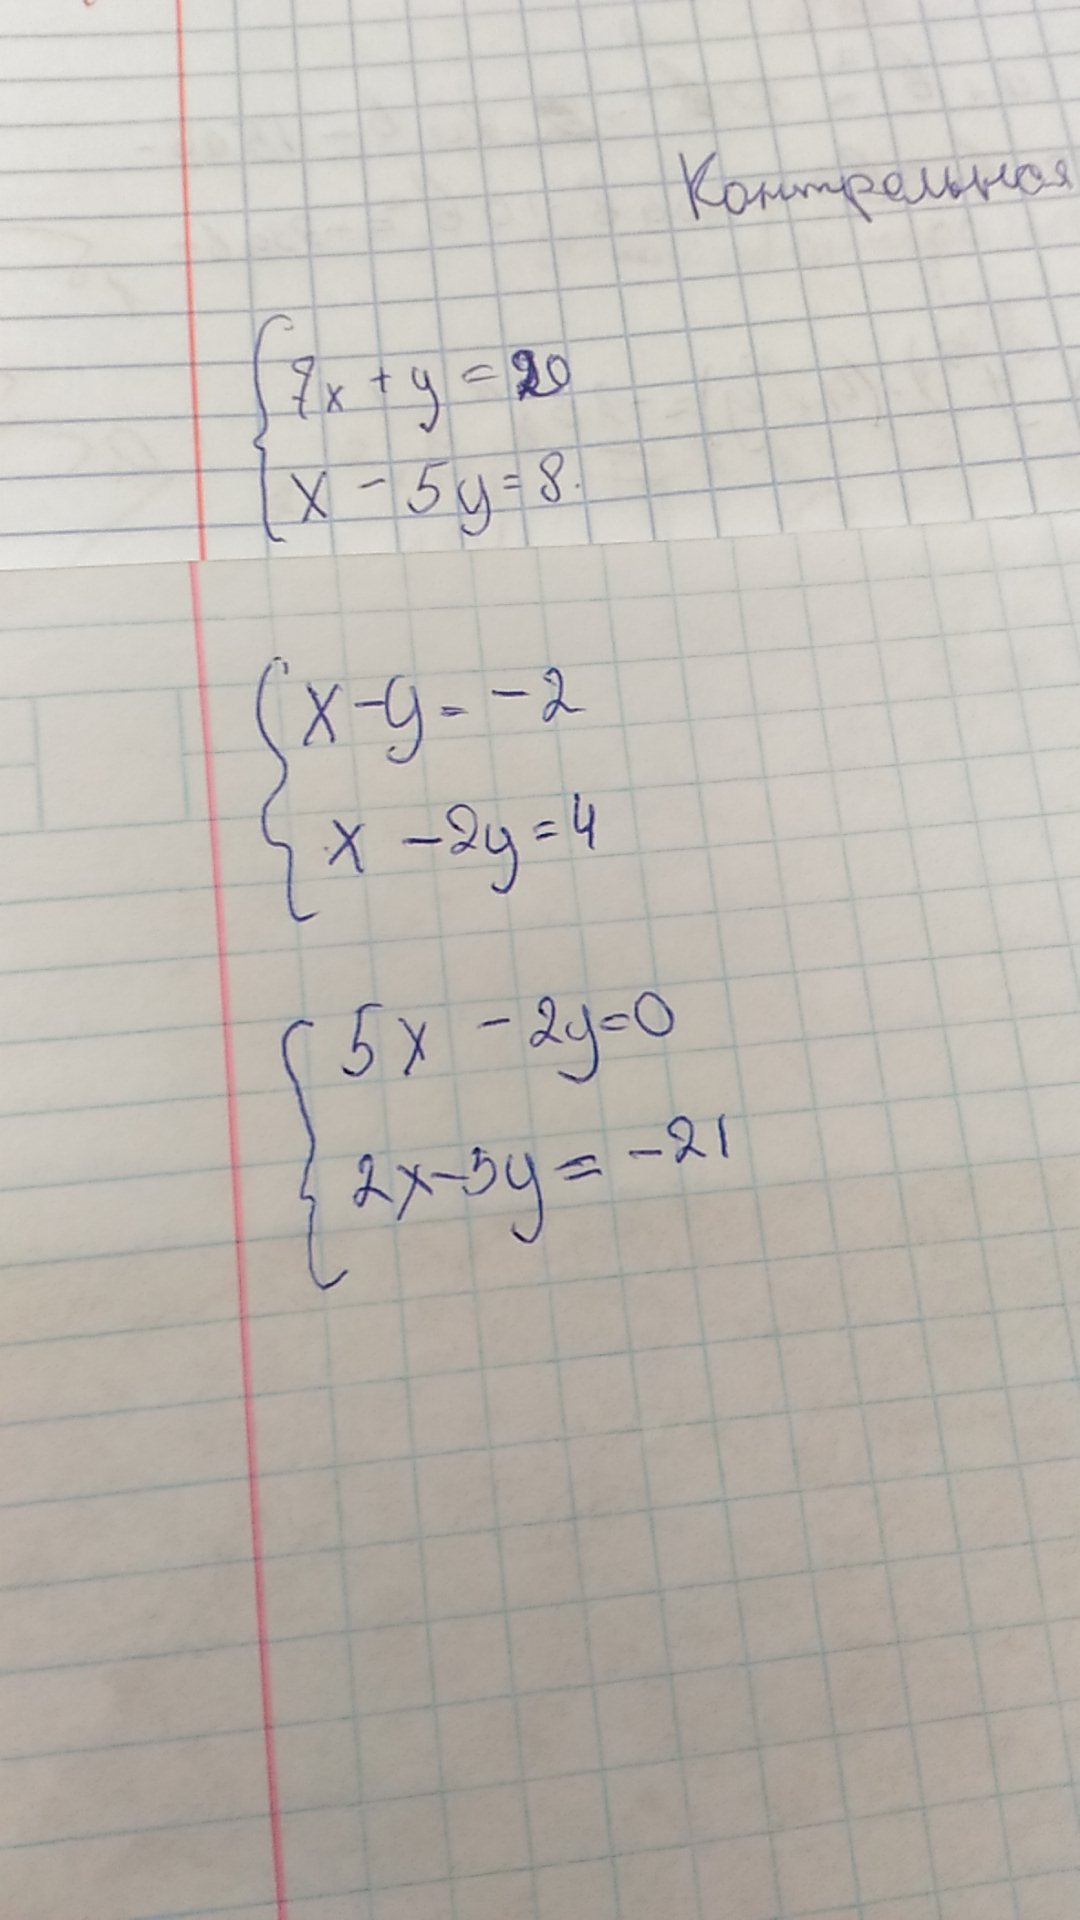 Контрольная
7x + y = 20
x - 5y = 8.
x - y = -2
x - 2y = 4
5x - 2y = 0
2x - 5y = -21